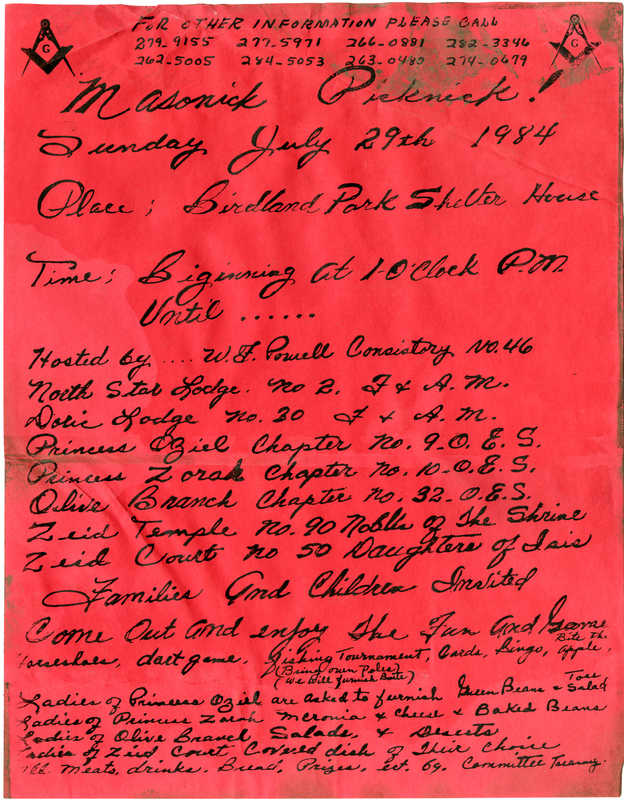 FOR OTHER INFORMATION PLEASE CALL
279-9155 277-5971 266-0881 282-3346
262-5005 284-5053 263-0480 274-0679
G G
Masonick Picknick!
Sunday July 29th 1984
Place; Birdland Park Shelter House
Time; Biginning At 1-O'Clock P.M.
Until ......
Hosted by .... W.F. Powell Consistory No. 46
North Star Lodge. No 2. F & A.M.
Doric Lodge No. 30 F & A.M.
Princess Oziel Chapter No. 9-O.E.S.
Princess Zorah Chapter No. 10-O.E.S.
Olive Branch Chapter No. 32-O.E.S.
Zeid Temple No. 90 Nobles of The Shrine
Zeid Court No 50 Daughters of Isis
Families And Children Invited
Come Out and enjoy The Fun And
Horseshoes, dart game, Fishing Tournament, Cards, Bingo, Bite The Apple,
(Bring own Poles)
(We Will furnish Baite)
Toss
Ladies of Princess Oziel are asked to furnish Green Beans & Salad
Ladies of Princess Zorah Mcronia & Cheese & Baked Beans
Ladies of Olive Branch Salads, & Deserts
Ladies of Zeid Court Covered dish of Their Choice
Meats, drinks, Bread, Prizes, ect. by. Committee